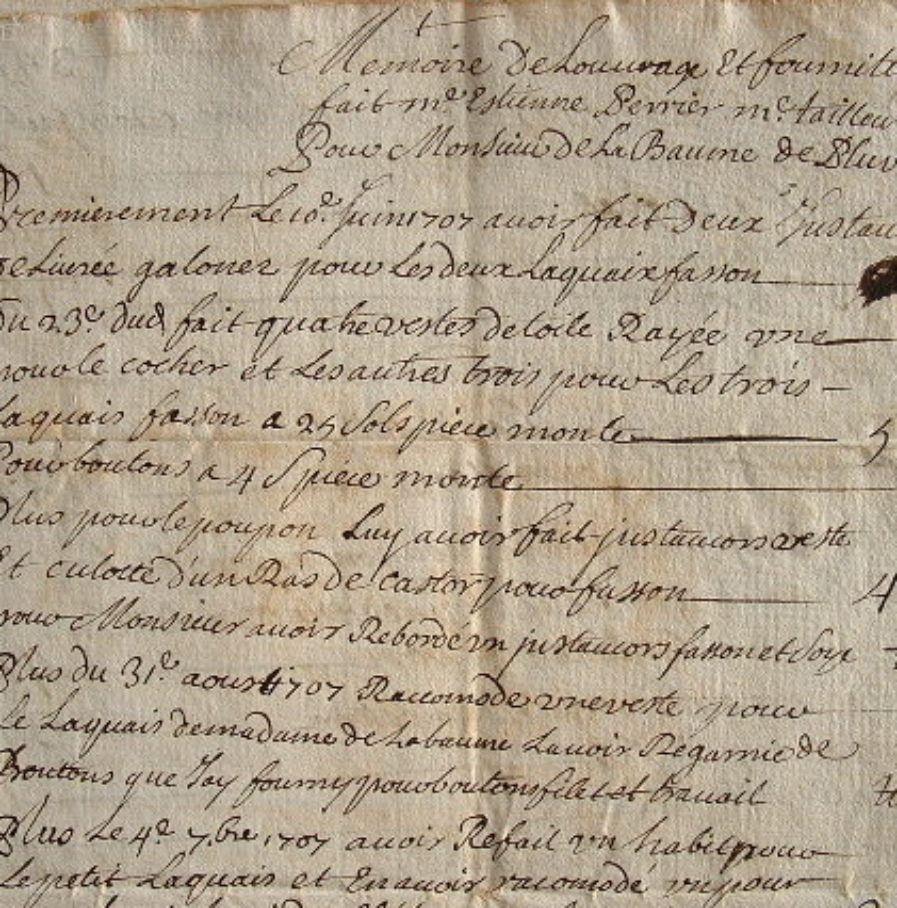 Memoire De Louurage Et fournit
fait me Estienne Perrier me tailleu
Pour Monsieur de La Baume de Pluv
Premierement Le 10e Juin 1707 auoir fait Deux Justau
de Liurée galonez pour Les deux Laquaix fasson
Du 23e dud fait quatre vestes de toile Rayée vne
pour le cocher et Les autres trois pour Les trois
Laquais fasson a 25 Sols piece monte 5
Pour boutons a 4 S piece monte
Plus pour le poupon Luy auoir fait justaucors veste
Et culotte d'un Ras de castor pour fasson 4
pour Monsieur auoir Rebordé vn justaucors fasson et Soye
Plus du 31e aoust 1707 Racomode vne veste pour
le Laquais de madame de Labaume Lauoir Regarnie de
Boutons que Jay fourny pour boutons filet et trauail
Plus Le 4e 7bre 1707 auoir Refait vn habit pour
Le petit Laquais et En auoir racomodé vn pour